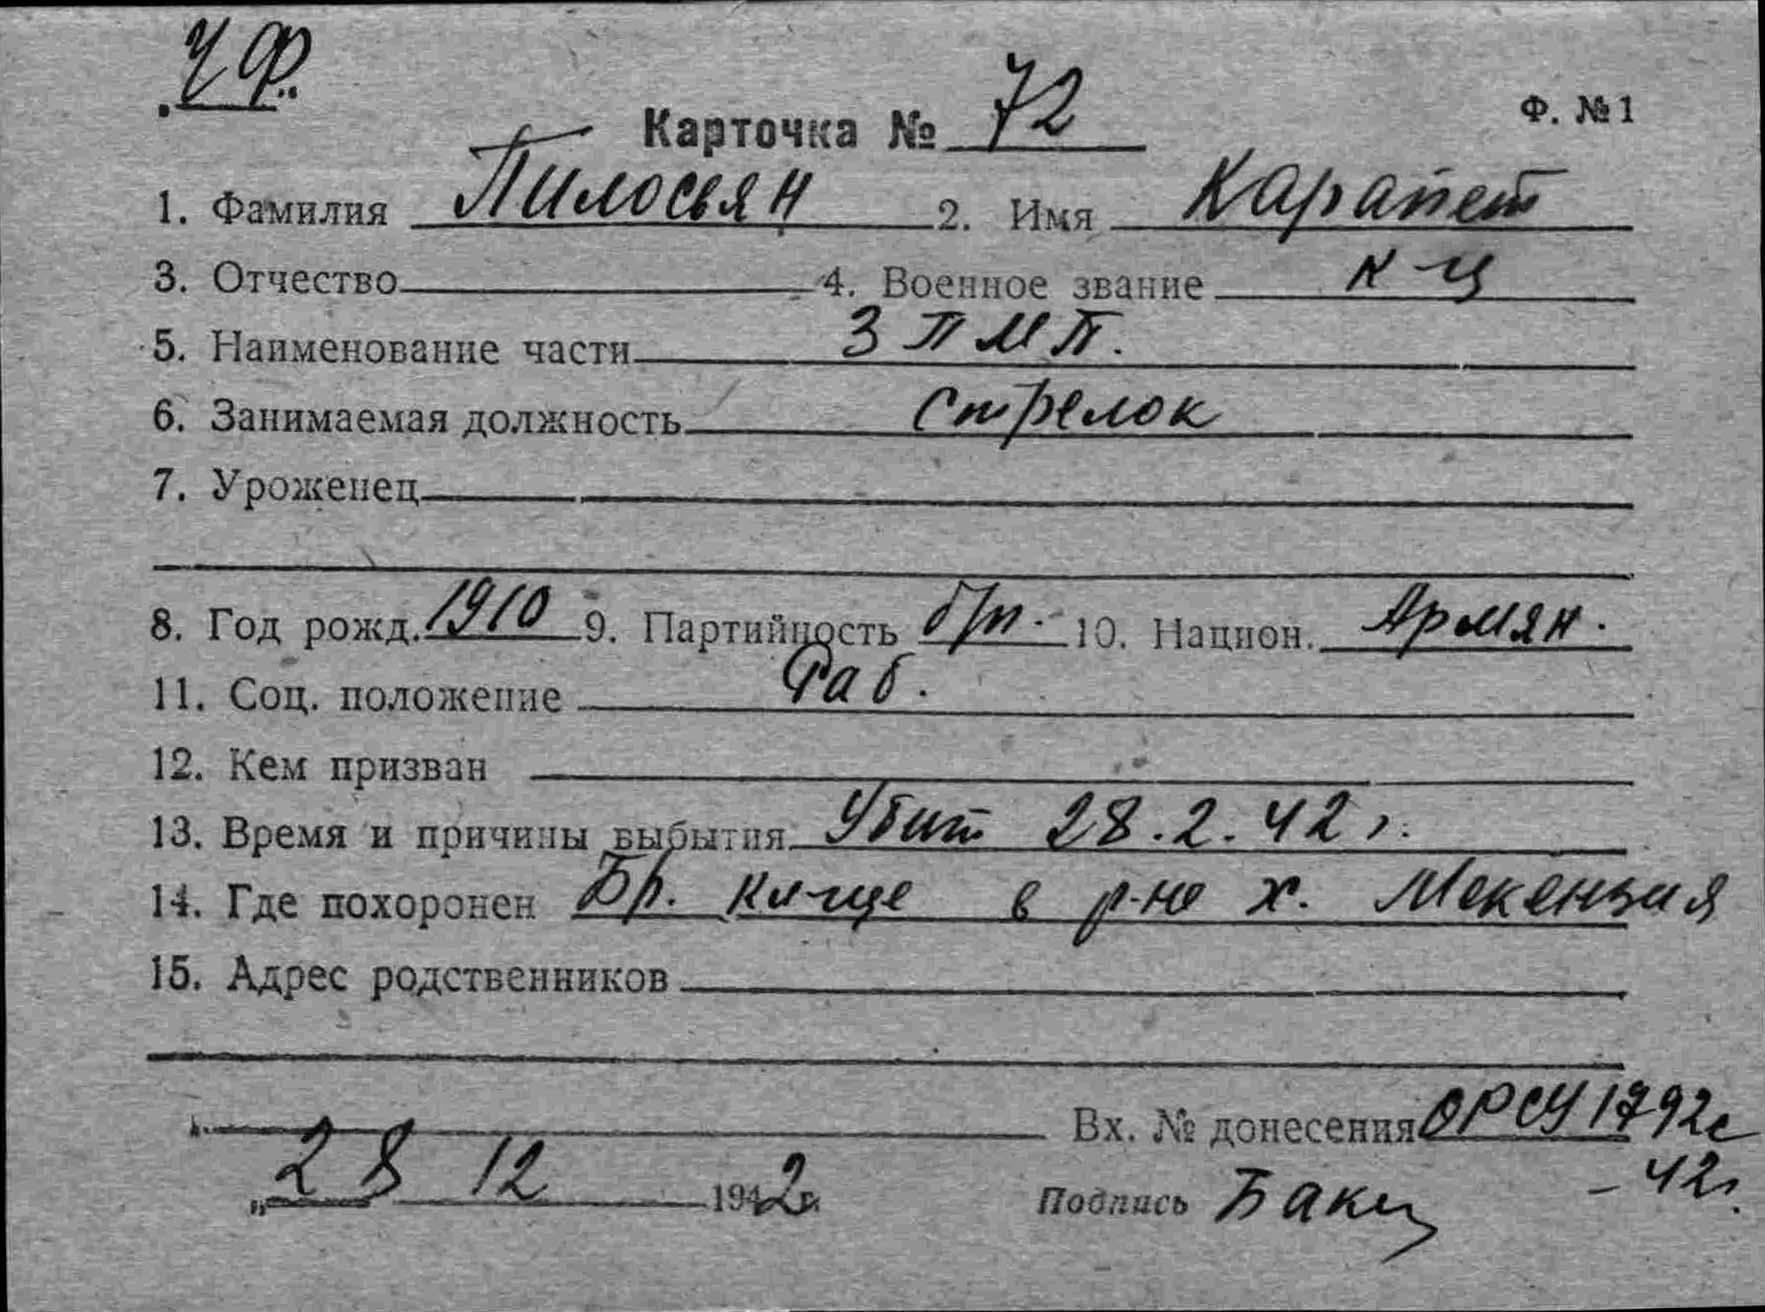 ЧФ.
Карточка № 72
Ф. № 1
1. Фамилия Пилосьян 2. Имя Карапет
3. Отчество 4. Военное звание к-ц
5. Наименование части 3 ПМП.
6. Занимаемая должность стрелок
7. Уроженец
8. Год рожд. 1910 9. Партийность б/п. 10. Национ. Армян.
11. Соц. положение Раб.
12. Кем призван
13. Время и причины выбытия Убит 28.2.42 г.
14. Где похоронен Бр. кл-ще в р-не х. Мекензия
15. Адрес родственников
Вх. № донесения ОРСУ 1792с
-42г.
„28 12 1942г.
Подпись